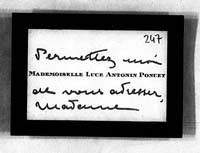 247
Permettez moi
MADEMOISELLE LUCE ANTONIN PONCET
de vous adresser,
Madame